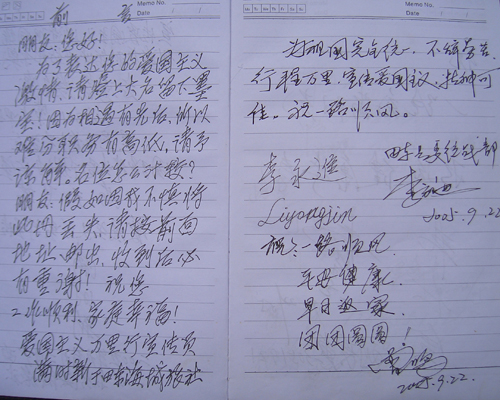 Memo No.
Date / /
前言
朋友,您好!
为了表达您的爱国主义
激情,请您上大名留下墨
宝!因为相遇有先后,所以
难分职务有高低,请予
谅解。名位怎么计较?
朋友,假如因我不慎将
此册丢失,请按前面
地址邮出,收到后必
有重谢! 祝您
工作顺利,家庭幸福!
爱国主义万里行宣传员
满时新于田东海城旅社
Memo No.
Date / /
为祖国完全统一,不辞劳苦,
行程万里,宣传爱国议,精神可
佳。祝一路顺风。
田东县委统战部
李永进
Liyongjin
2005.9.22
祝:一路顺风
平安健康
早日返家
团团圆圆!
2005.9.22.